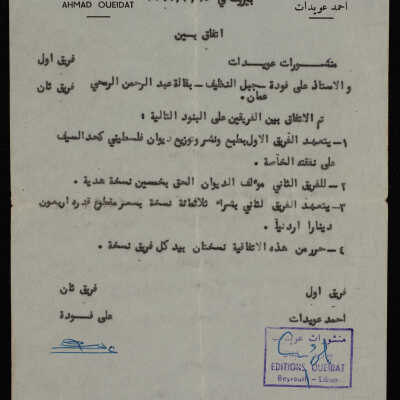 AHMAD OUEIDAT
احمد عويدات
بيروت في
اتفاق بين
منشورات عويدات فريق اول
و الاستاذ على فودة جبل النظيف - بقالة عبد الرحمن الرمحي فريق ثان
عمان .
تم الاتفاق بين الفريقين على البنود التالية :
١ - يتعهد الفريق الاول بطبع ونشر وتوزيع ديوان فلسطيني كحد السيف
على نفقته الخاصة .
٢ - للفريق الثاني مؤلف الديوان الحق بخمسين نسخة هدية .
٣ - يتعهد الفريق الثاني بشراء ثلاثمائة نسخة بسعر مقطوع قدره اربعون
دينارا اردنيا .
٤ - حرر من هذه الاتفاقية نسختان بيد كل فريق نسخة .
فريق اول فريق ثان
احمد عويدات على فودة
منشورات عويدات
EDITIONS OUEIDAT
Beyrouth - Liban